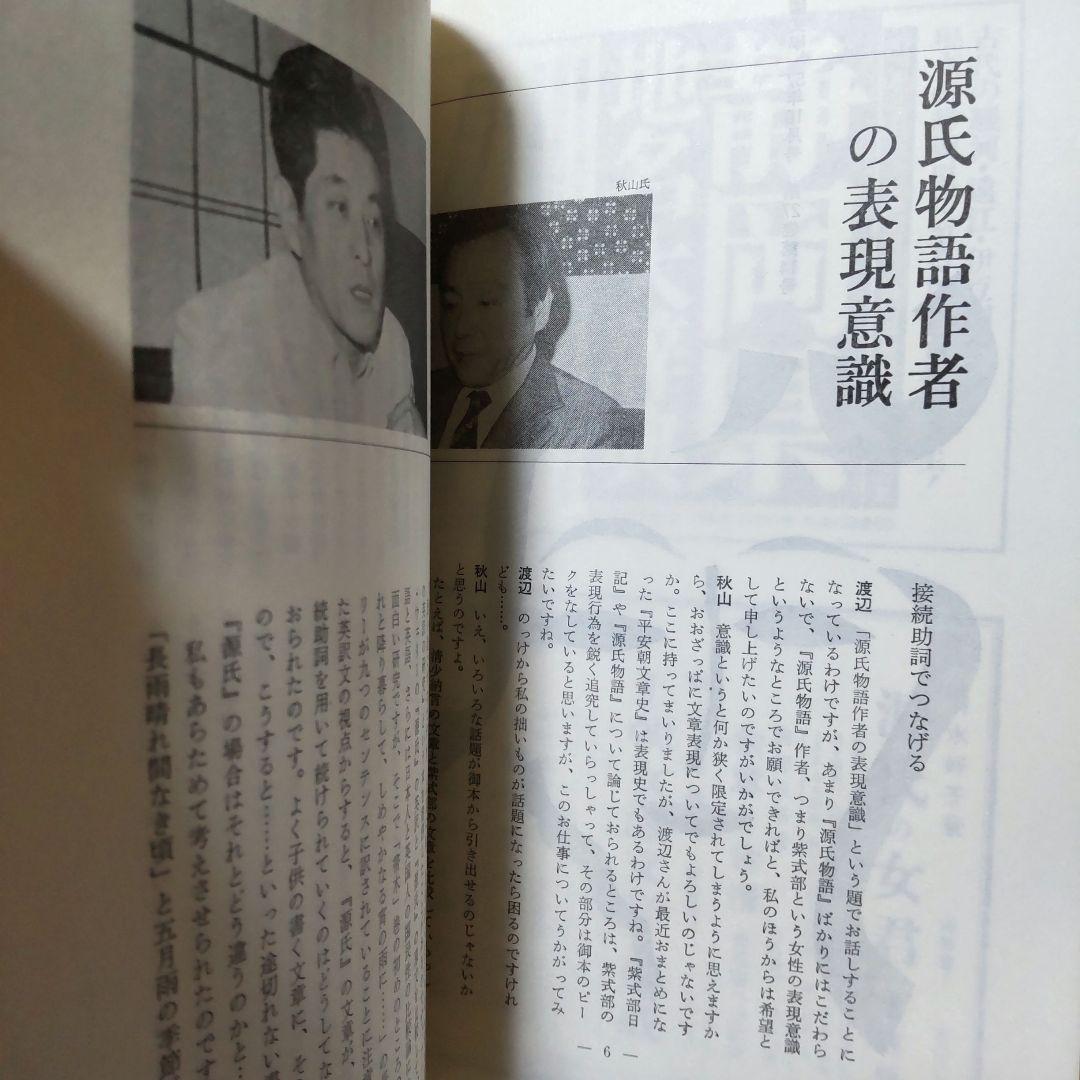 源氏物語作者
の表現意識
秋山氏
接続助詞でつなげる
渡辺 「源氏物語作者の表現意識」という題でお話しすることに
なっているわけですが、あまり『源氏物語』ばかりにはこだわら
ないで、『源氏物語』作者、つまり紫式部という女性の表現意識
というようなところでお願いできればと、私のほうからは希望と
して申し上げたいのですがいかがでしょう。
秋山 意識というと何か狭く限定されてしまうように思えますか
ら、おおざっぱに文章表現についてでもよろしいのじゃないです
か。ここに持ってまいりましたが、渡辺さんが最近おまとめにな
った『平安朝文章史』は表現史でもあるわけですね。『紫式部日
記』や『源氏物語』について論じておられるところは、紫式部の
表現行為を鋭く追究していらっしゃって、その部分は御本のピー
クをなしていると思いますが、このお仕事についてうかがってみ
たいですね。
渡辺 のっけから私の拙いものが話題になったら困るのですけれ
ども……。
秋山 いえ、いろいろな話題が御本から引き出せるのじゃないか
と思うのですよ。
たとえば、清少納言の文章と紫式部の文章と
― 6 ―
面白い研究ですが、そこで「帚木」巻の初めのところの
れと降り暮らして、しめやかなる宵の雨に……」の
リーが九つのセンテンスに訳されていることに注
た英訳文の視点からすると、『源氏』の文章が、
続助詞を用いて続けられていくのはどうしてな
おられたのです。よく子供の書く文章に、そ
ので、こうすると……といった途切れない
『源氏』の場合はそれとどう違うのかと…
私もあらためて考えさせられたのです
「長雨晴れ間なき頃」と五月雨の季節